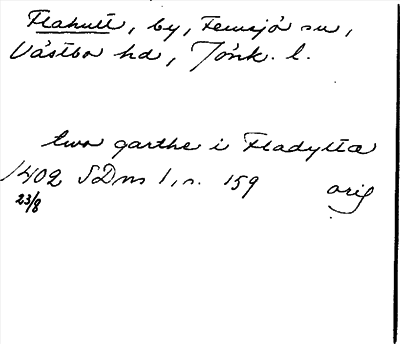 Flahult, by, Femsjö sn,
Västbo hd, Jönk. l.
two garthe i Fladylta
1402 SDns 1, s. 159 orig
23/8